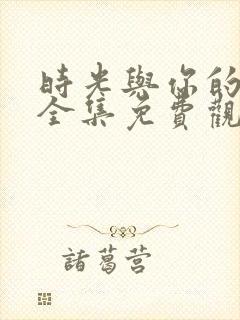 時光與你的
全集免費觀
諸葛营